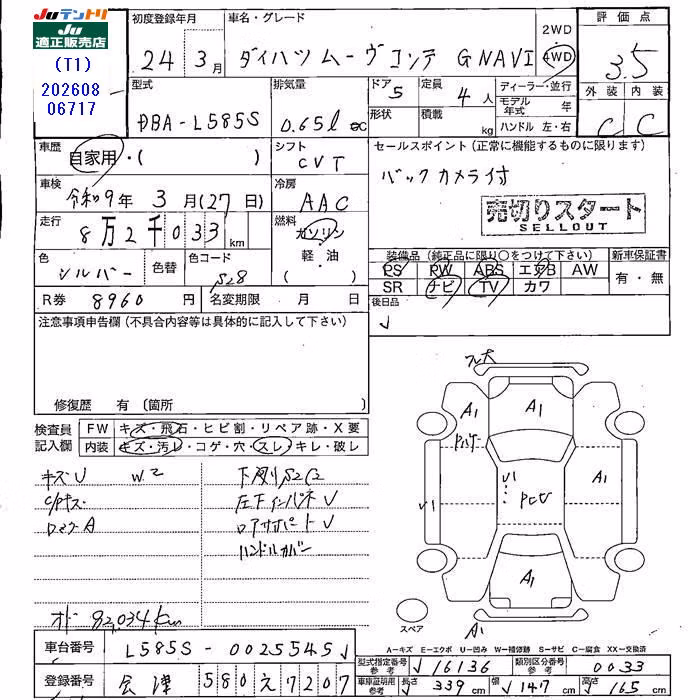 JUテントリ
JU
適正販売店
(T1)
202608
06717
初度登録年月
24年3月
車名・グレード
ダイハツ ムーヴコンテ G NAVI
2WD
・
4WD
評価点
3.5
外装 内装
C C
型式
DBA-L585S
排気量
0.65ℓ cc
ドア
5
形状
定員
4人
積載
kg
ディーラー・並行
モデル年式 年
ハンドル 左・右
車歴
自家用・( )
シフト
CVT
セールスポイント(正常に機能するものに限ります)
バックカメラ付
売切りスタート
SELLOUT
車検
令和9年3月(27日)
冷房
AAC
走行
8万2千033km
燃料
ガソリン
・
軽・油
( )
色
シルバー
色替
色コード
S28
装備品(純正品に限り○をつけて下さい)
PS PW ABS エアB AW
SR ナビ TV カワ
新車保証書
有・無
R券 8960円
名変期限 月 日
後日品
注意事項申告欄(不具合内容等は具体的に記入して下さい)
修復歴 有(箇所 )
検査員
記入欄
FW キズ・飛石・ヒビ割・リペア跡・X要
内装 キズ・汚レ・コゲ・穴・スレ・キレ・破レ
キズU W2
下廻りS2C2
C/Pキズ
左下インパネU
ロアサポートU
ハンドルカバー
オドー 82,034km
A1 A1
U1 U1 A1
A1
A1
スペア
A-キズ E-エクボ U-凹み W-補修跡 S-サビ C-腐食 XX-交換済
車台番号 L585S-0025545
型式指定番号
参考
16136
類別区分番号
参考
0033
登録番号 会津 580 え 7207
車車証明用
参考
長さ 339cm 幅 147cm 高さ 165cm